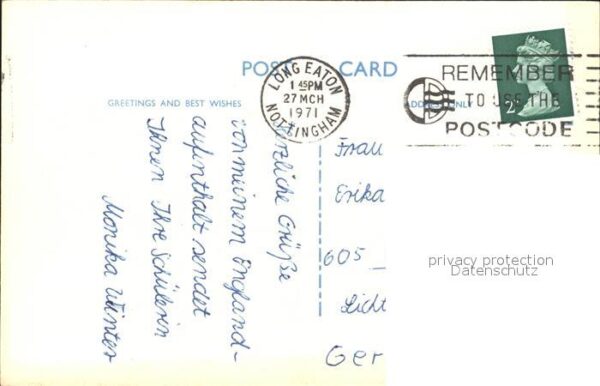 POST CARD
GREETINGS AND BEST WISHES
ADDRESS ONLY
LONG EATON
1 45PM
27 MCH
1971
NOTTINGHAM
REMEMBER
TO USE THE
POSTCODE
2
Herzliche Grüße
von meinem England-
aufenthalt sendet
Ihnen Ihre Schülerin
Monika Winter
Frau
Erika
605
Licht
Ger
privacy protection
Datenschutz